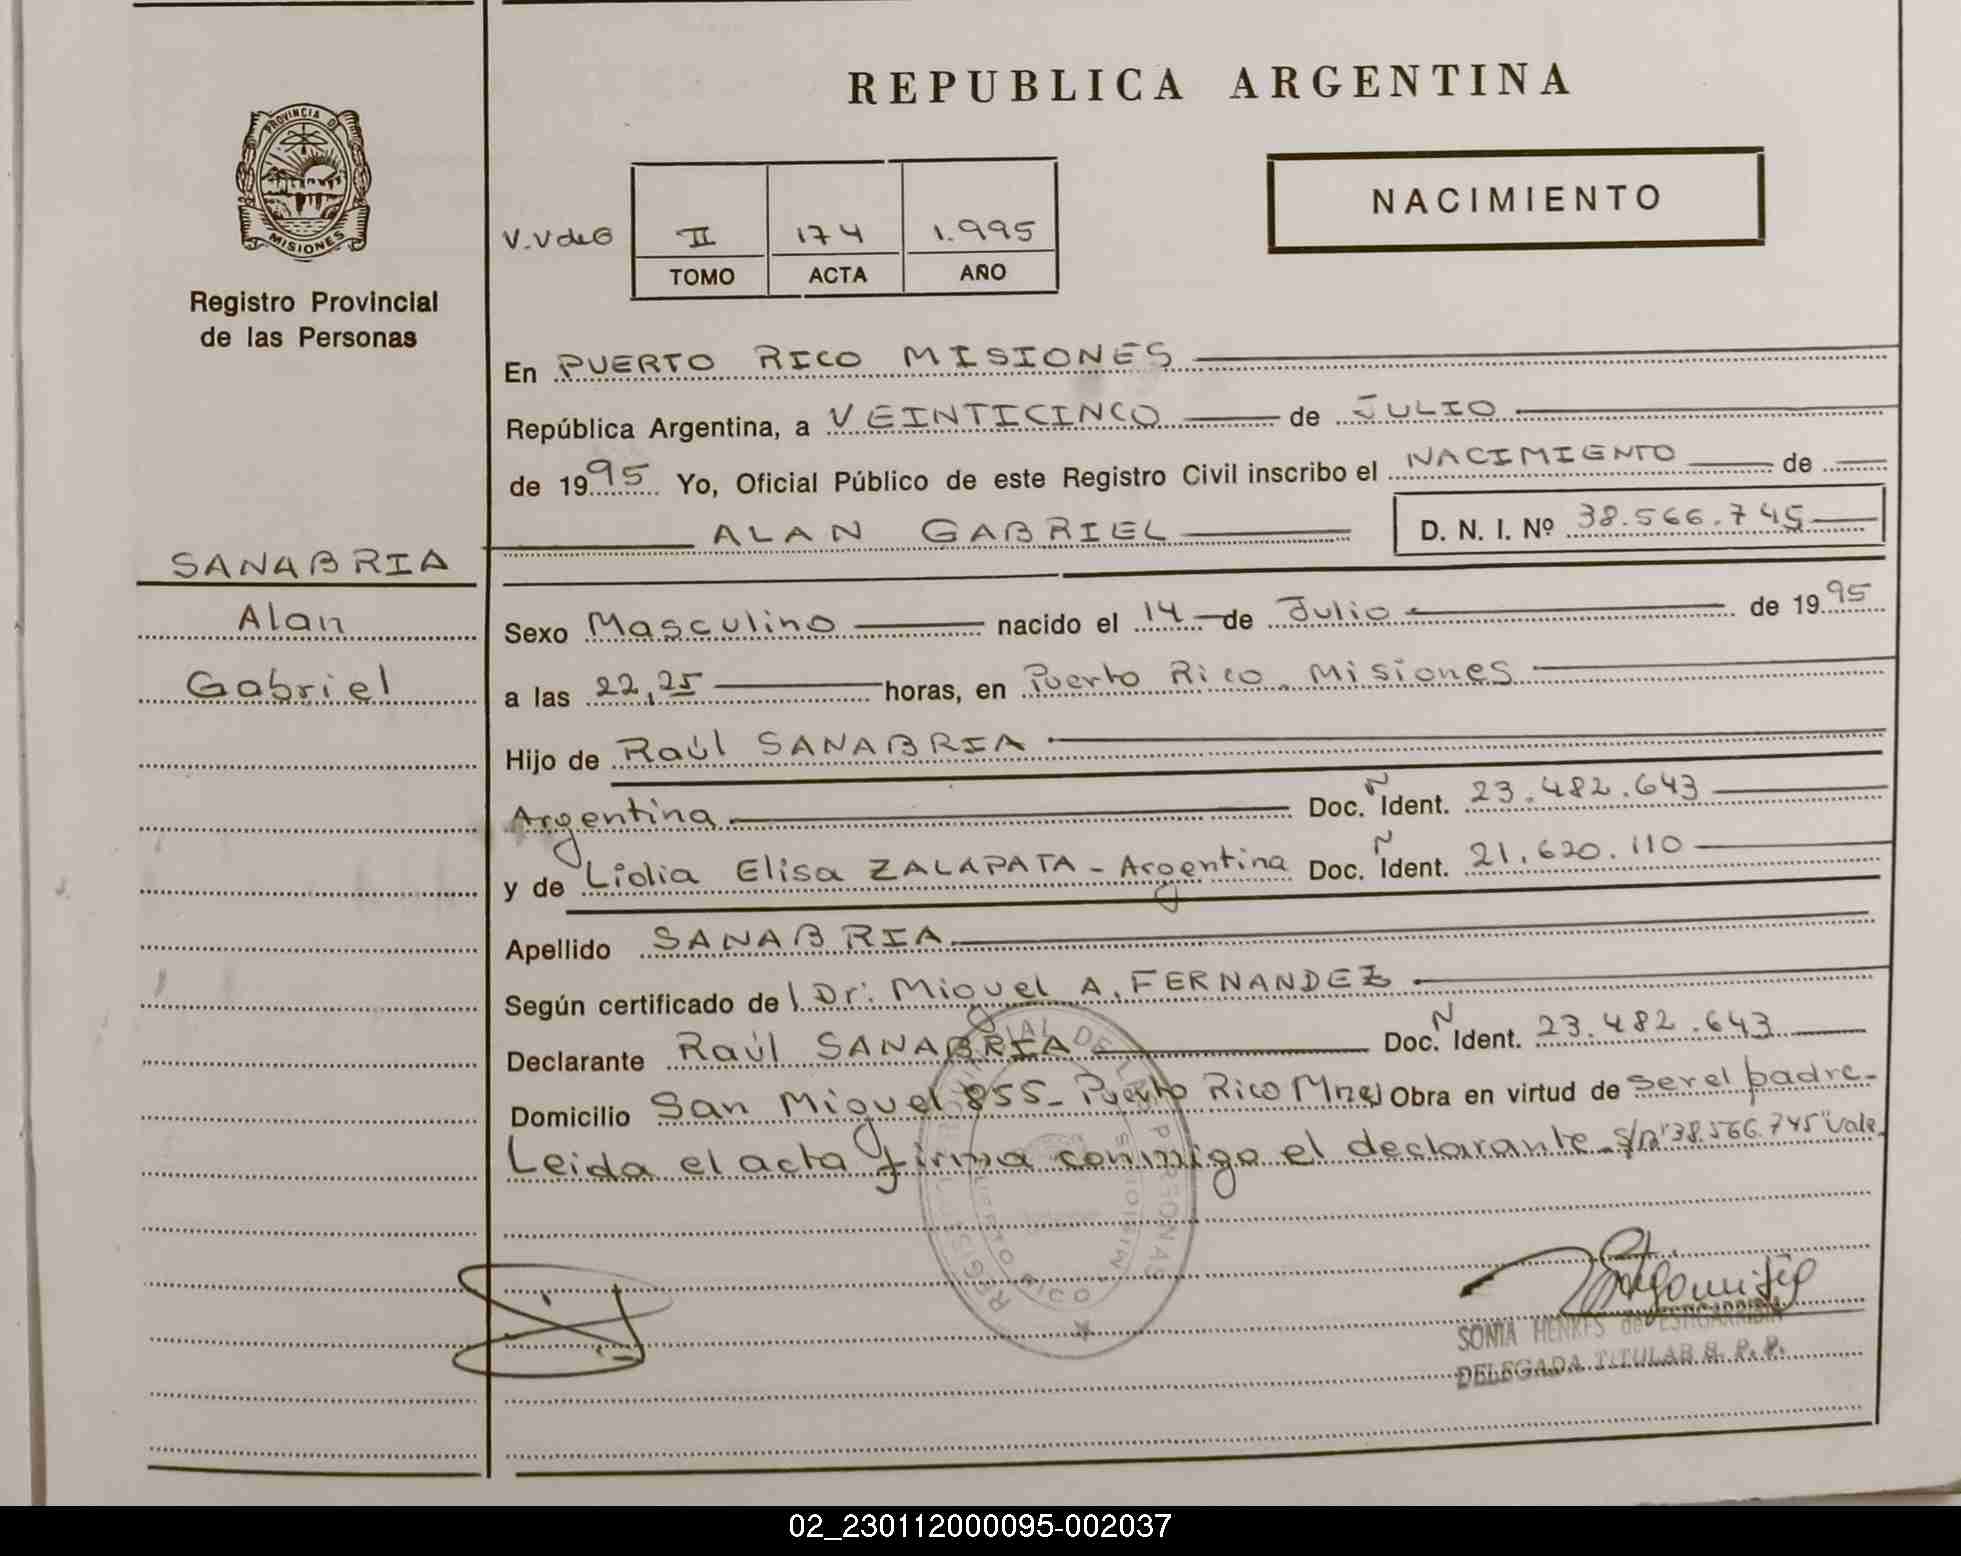 REPUBLICA ARGENTINA
PROVINCIA D
MISIONES
NACIMIENTO
V.V de G
II 174 1.995
TOMO ACTA AÑO
Registro Provincial
de las Personas
En PUERTO RICO MISIONES
República Argentina, a VEINTICINCO de JULIO
de 1995 Yo, Oficial Público de este Registro Civil inscribo el NACIMIENTO de
ALAN GABRIEL D. N. I. Nº 38.566.745
SANABRIA
Alan
Gabriel
Sexo Masculino nacido el 14 de Julio de 1995
a las 22,25 horas, en Puerto Rico. Misiones
Hijo de Raúl SANABRIA
Argentina Doc. Ñ Ident. 23.482.643
y de Lidia Elisa ZALAPATA - Argentina Doc. Ñ Ident. 21.620.110
Apellido SANABRIA
Según certificado de Dr. Miguel A. FERNANDEZ
Declarante Raúl SANABRIA Doc. Ñ Ident. 23.482.643
Domicilio San Miguel 855- Puerto Rico Mnes Obra en virtud de ser el padre-
Leida el acta firma conmigo el declarante. S/r "38.566.745" Vale.
SONIA HENKES de ESTIGARRIBIA
DELEGADA TITULAR R. P. P.
02_230112000095-002037